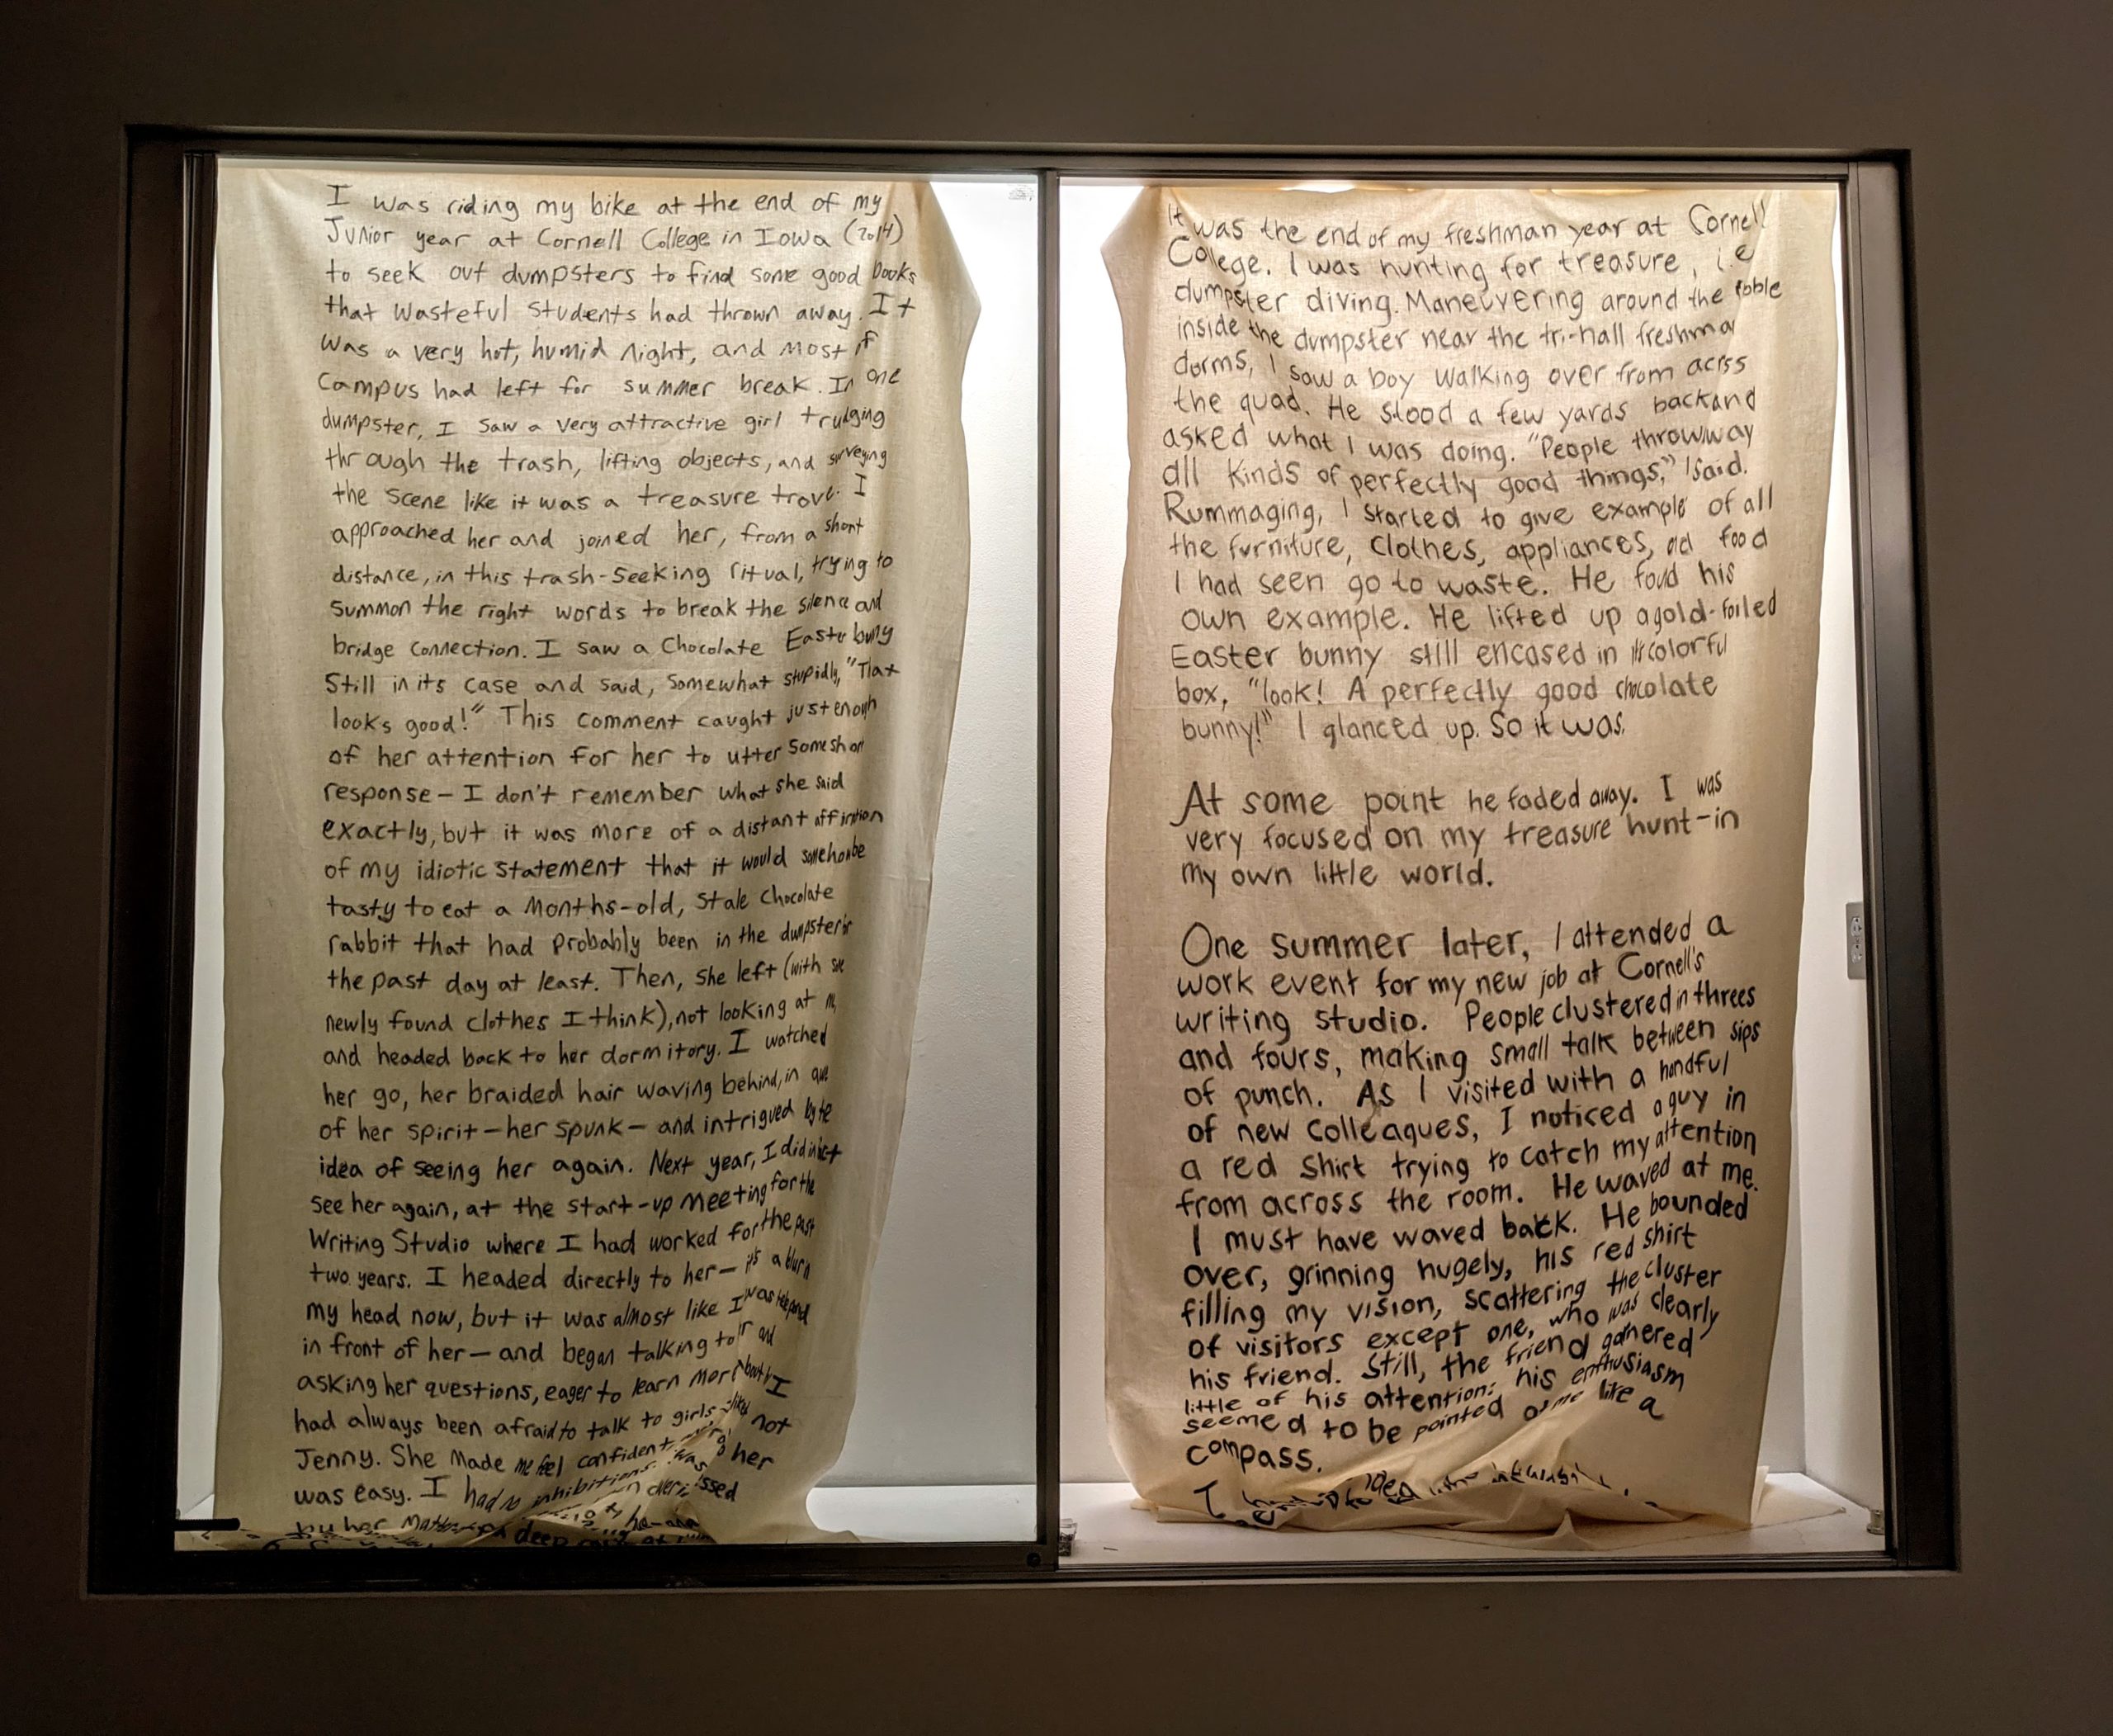 I was riding my bike at the end of my
Junior year at Cornell College in Iowa (2014)
to seek out dumpsters to find some good books
that wasteful students had thrown away. It
was a very hot, humid night, and most if
campus had left for summer break. In one
dumpster, I saw a very attractive girl trudging
through the trash, lifting objects, and surveying
the scene like it was a treasure trove. I
approached her and joined her, from a short
distance, in this trash-seeking ritual, trying to
summon the right words to break the silence and
bridge connection. I saw a Chocolate Easter bunny
still in its case and said, somewhat stupidly, "That
looks good!" This comment caught just enough
of her attention for her to utter some short
response - I don't remember what she said
exactly, but it was more of a distant
of my idiotic statement that it would somehow be
tasty to eat a months-old, stale chocolate
rabbit that had probably been in the dumpster
the past day at least. Then, she left (with
newly found clothes I think), not looking at
and headed back to her dormitory. I watched
her go, her braided hair waving behind, in awe
of her spirit - her spunk - and intrigued by the
idea of seeing her again. Next year, I did
see her again, at the start-up meeting for the
Writing Studio where I had worked for the past
two years. I headed directly to her - it's a blur in
my head now, but it was almost like I was
in front of her - and began talking to and
asking her questions, eager to learn more I
had always been afraid to talk to girls not
Jenny. She made me feel confident her
was easy. I had no inhibitions. was
by her deep
It was the end of my freshman year at Cornell
College. I was hunting for treasure, i.e
dumpster diving. Maneuvering around the
inside the dumpster near the tri-hall freshman
dorms, I saw a boy walking over from across
the quad. He stood a few yards back and
asked what I was doing. "People throw away
all kinds of perfectly good things," I said.
Rummaging, I started to give example of all
the furniture, clothes, appliances, and food
I had seen go to waste. He found his
own example. He lifted up a gold-foiled
Easter bunny still encased in its colorful
box, "look! A perfectly good chocolate
bunny!" I glanced up. So it was.
At some point he faded away. I was
very focused on my treasure hunt-in
my own little world.
One summer later, I attended a
work event for my new job at Cornell's
writing studio. People clustered in threes
and fours, making small talk between sips
of punch. As I visited with a handful
of new colleagues, I noticed a guy in
a red shirt trying to catch my attention
from across the room. He waved at me.
I must have waved back. He bounded
over, grinning hugely, his red shirt
filling my vision, scattering the cluster
of visitors except one, who was clearly
his friend. Still, the friend garnered
little of his attention: his enthusiasm
seemed to be pointed at me like a
compass.
I